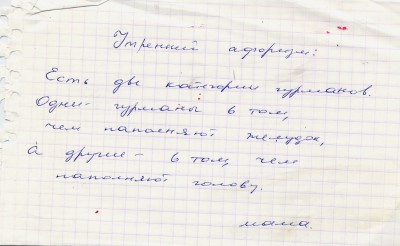 Утренний афоризм:
Есть две категории гурманов.
Одни - гурманы в том,
чем наполняют желудок,
а другие - в том, чем
наполняют голову.
мама.